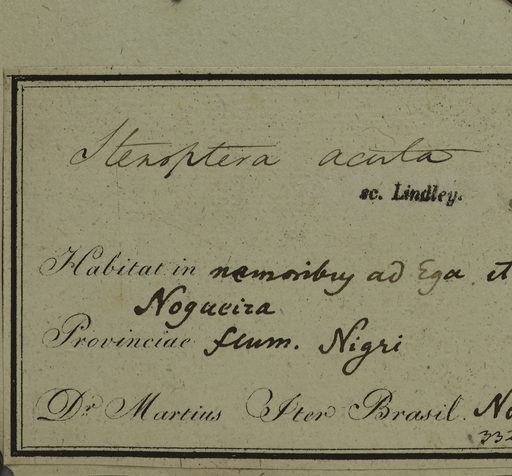 Stenoptera acuta
sc. Lindley.
Habitat in nemoribus ad Ega et
Nogueira
Provinciae flum. Nigri
Dr. Martius Iter Brasil. No
332